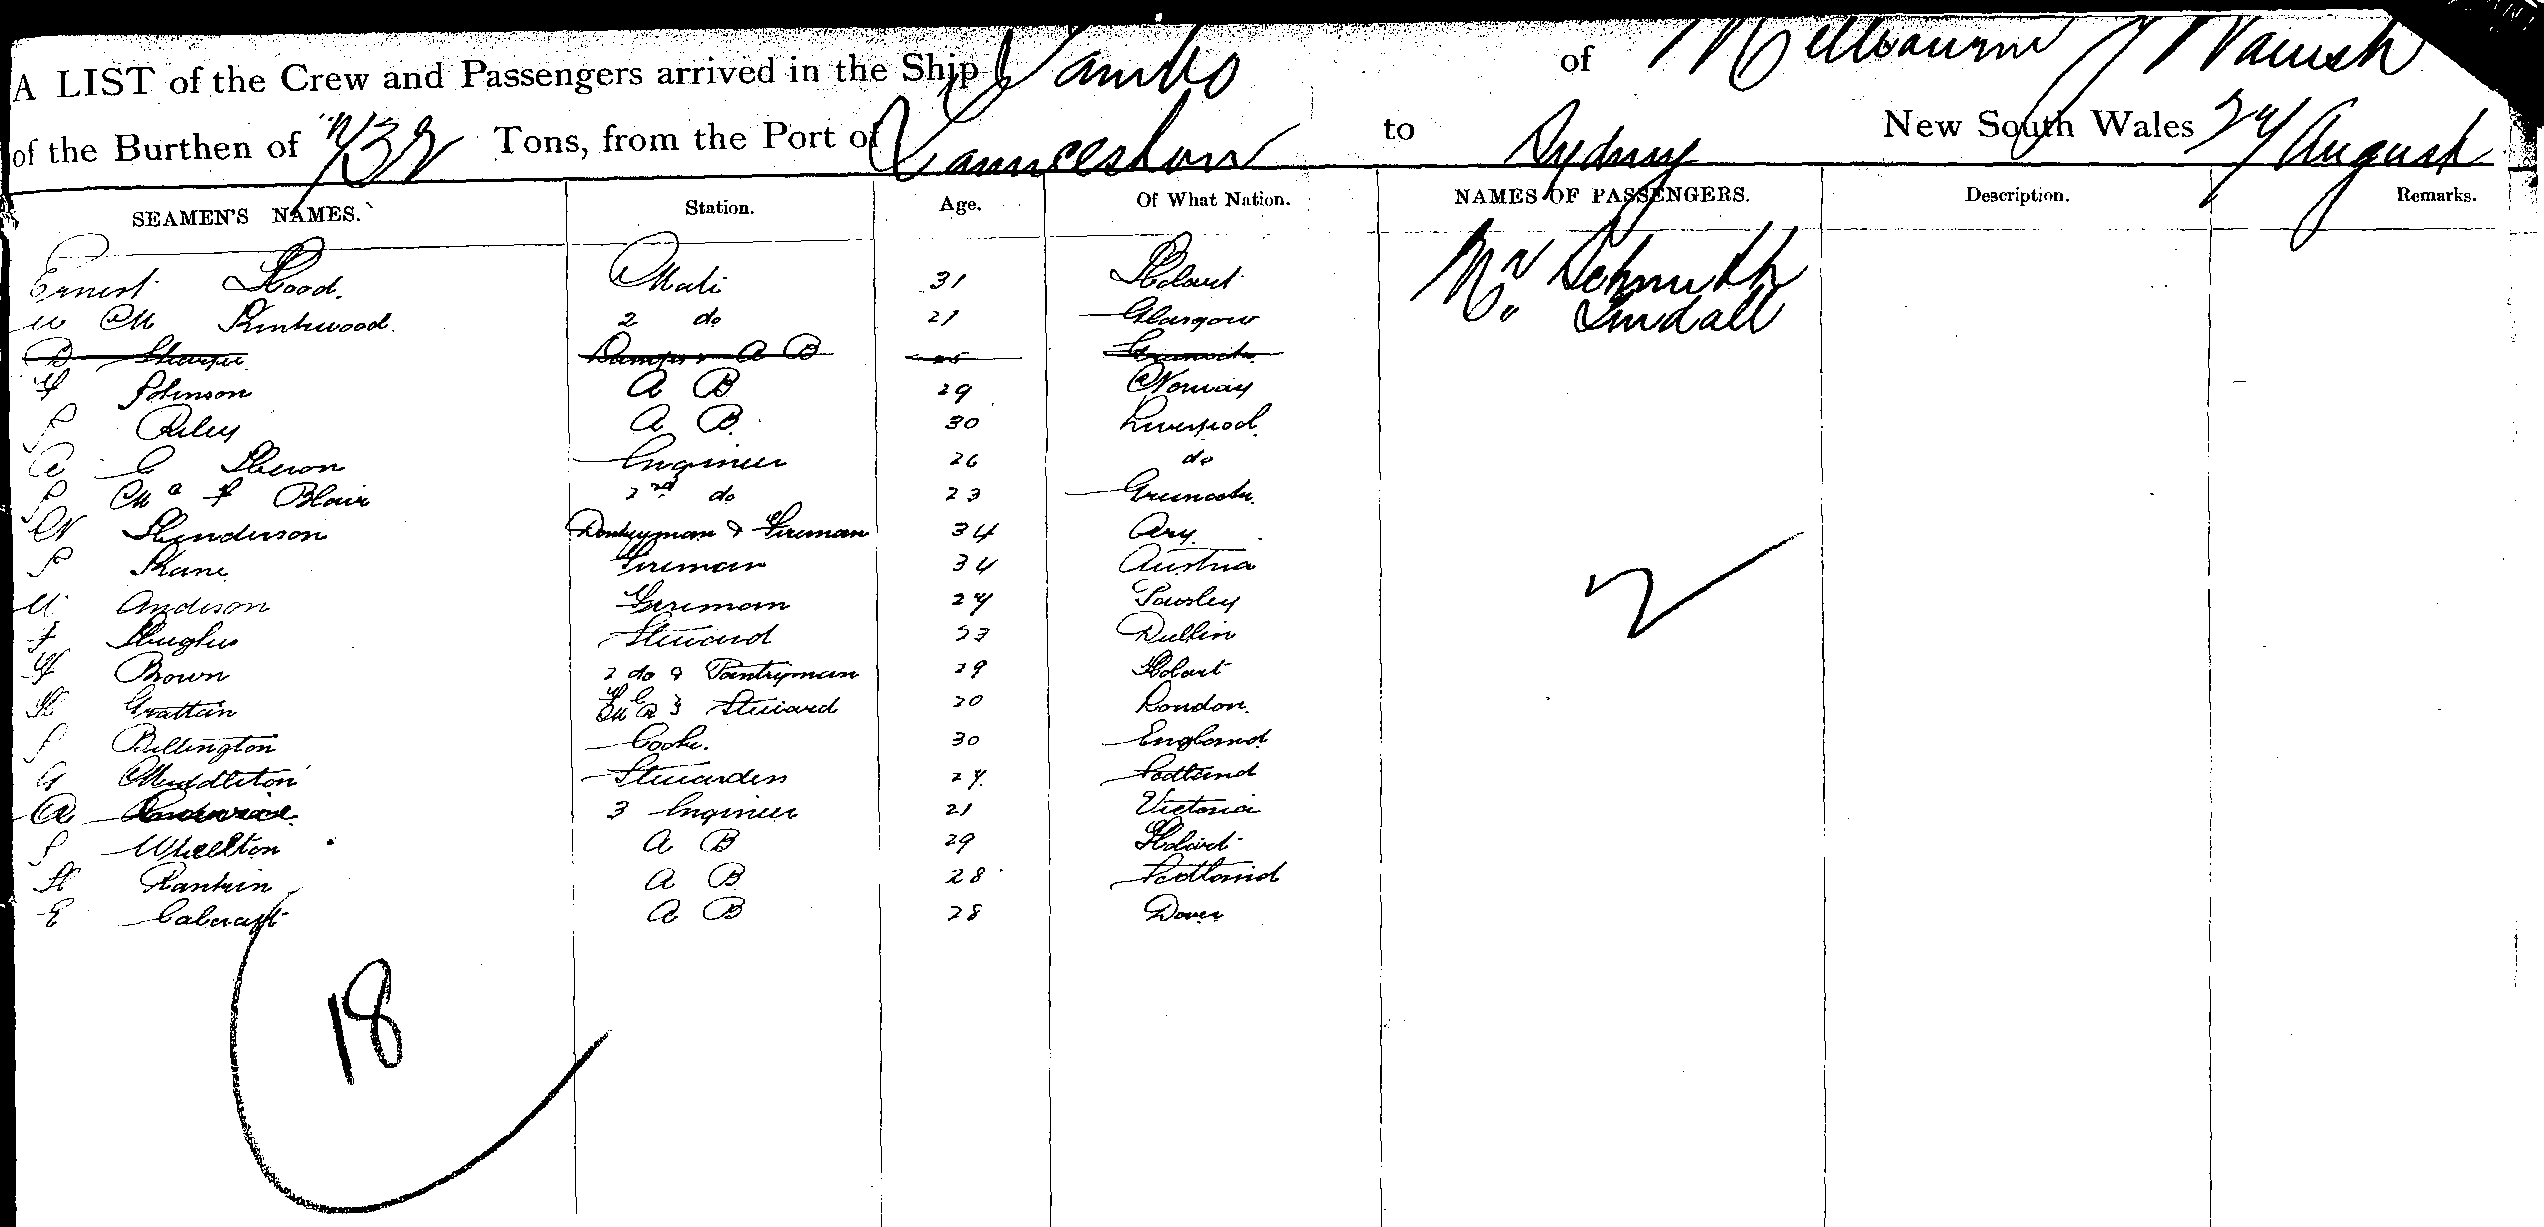 A LIST of the Crew and Passengers arrived in the Ship Tambo of Melbourne J Warish
of the Burthen of 732 Tons, from the Port of Launceston to Sydney New South Wales 24 August
SEAMEN'S NAMES. Station. Age. Of What Nation. NAMES OF PASSENGERS. Description. Remarks.
Ernest Hood. Mate 31 Hobart Mr Schmidt
W M Kirkwood. 2 do 21 Glasgow Mr. Lindall
D Sharper A B Greenock
H Johnson A B 29 Norway
J Riley A B. 30 Liverpool.
A C Heron Engineer 26 do
J Mc F Blair 2nd do 23 Greenock.
N Henderson Donkeyman & Fireman 34 Ary.
J Kane Fireman 34 Austria
W Anderson Fireman 24 Paisley
F Hughes Steward 23 Dublin
H Brown 2 do & Pantryman 29 Hobart
H Grattan F C & 3 Steward 20 London.
J Billington Cook. 30 England
G Middleton Stewardess 24. Scotland
A 3 Engineer 21 Victoria
J Whelton A B 29 Hobart
H Rankin A B 28 Scotland
E Calcraft A B 28 Dover
2
18